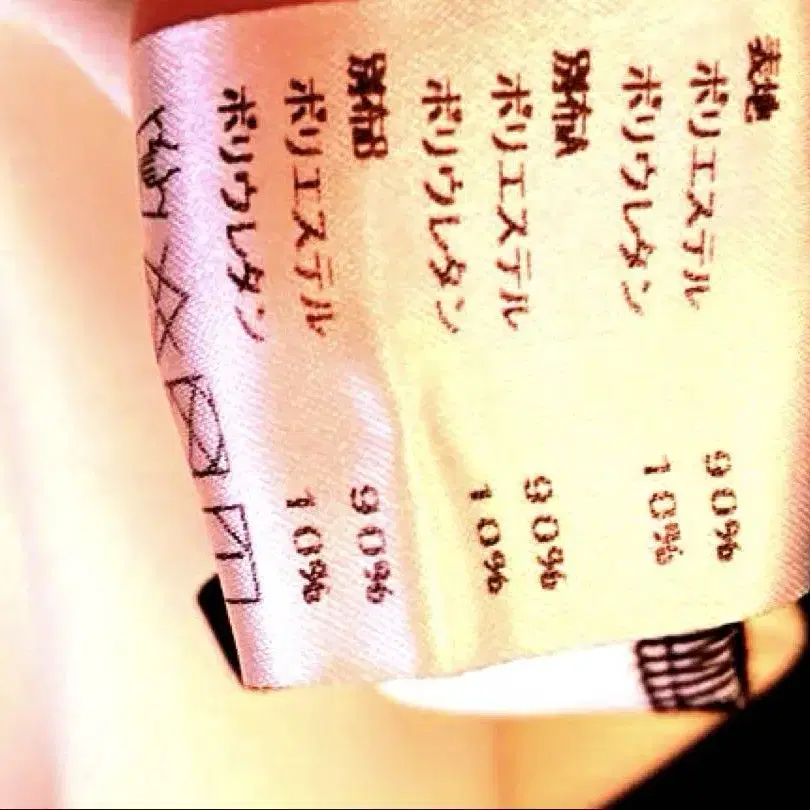 表地
ポリエステル 90%
ポリウレタン 10%
別布A
ポリエステル 90%
ポリウレタン 10%
別布B
ポリエステル 90%
ポリウレタン 10%